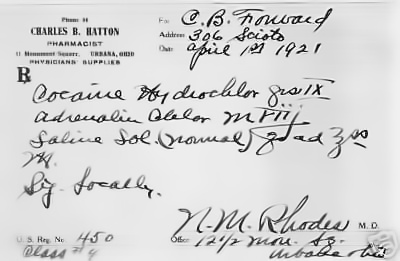 Phone 44
CHARLES B. HATTON
PHARMACIST
11 Monument Square, URBANA, OHIO
PHYSICIANS' SUPPLIES
For C. B. Forward
Address: 306 Scioto
Date: April 1st 1921
℞
Cocaine Hydrochlor grs IX
Adrenalin Chlor M VIII
Saline Sol. (normal) qs ad ℥ss
M.
Sig. Locally.
N. M. Rhodes M. D.
U. S. Reg. No. 450
Office 12 1/2 Mon. Sq.
Class # 4
Urbana Ohio